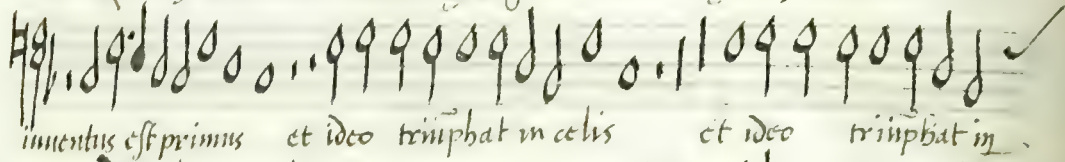 inuentus est primus et ideo triūphat in celis et ideo triūphat in